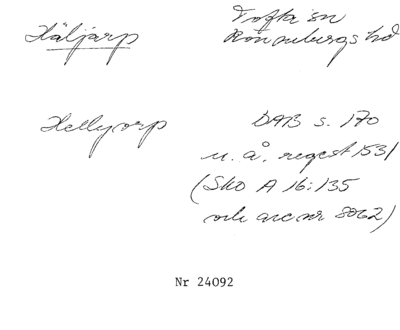 Häljarp
Tofta sn
Rönnebergs hd
Hellyorp
DAB s. 170
u. å. regest 1531
(Sko A 16:135
och arc nr 8062)
Nr 24092